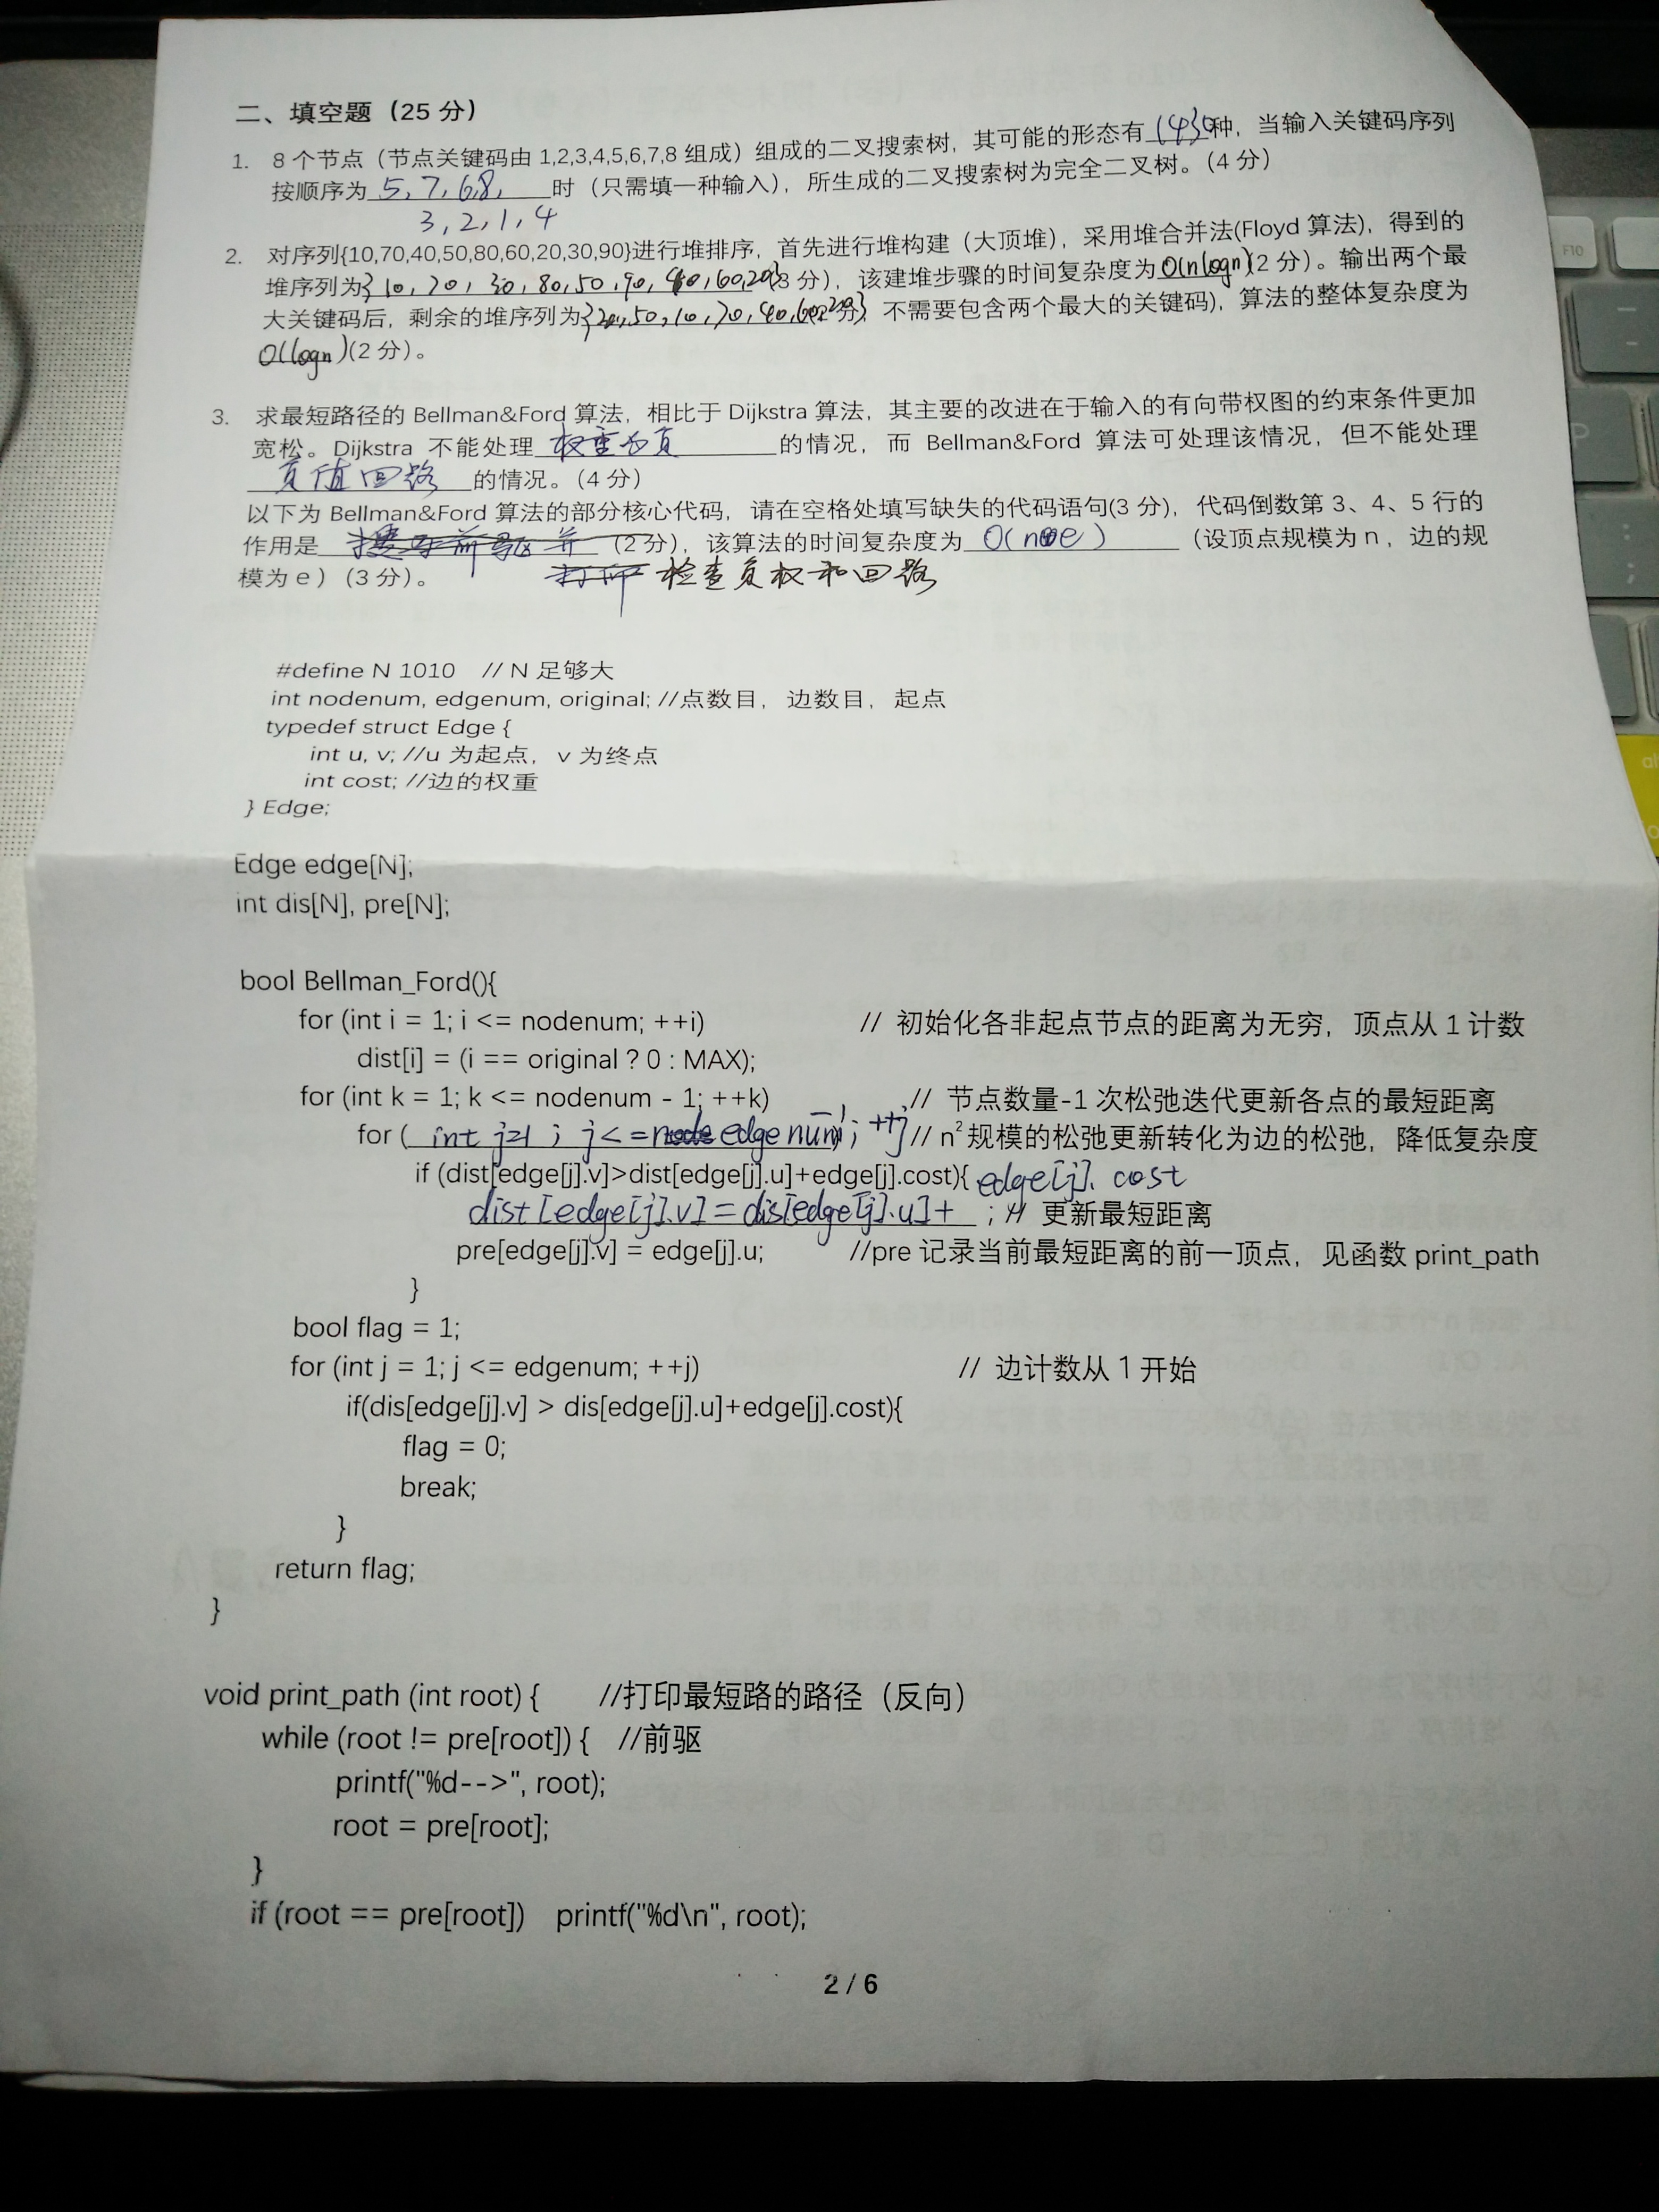 二、填空题（25 分）
1. 8 个节点（节点关键码由 1,2,3,4,5,6,7,8 组成）组成的二叉搜索树，其可能的形态有 1430 种，当输入关键码序列
按顺序为 5,7,6,8, 时（只需填一种输入），所生成的二叉搜索树为完全二叉树。（4 分）
3,2,1,4
2. 对序列{10,70,40,50,80,60,20,30,90}进行堆排序，首先进行堆构建（大顶堆），采用堆合并法(Floyd 算法)，得到的
堆序列为{10, 70, 30, 80, 50, 90, 40, 60, 20}(3 分)，该建堆步骤的时间复杂度为 O(nlogn)(2 分)。输出两个最
大关键码后，剩余的堆序列为 50,10,70,40, 分，不需要包含两个最大的关键码)，算法的整体复杂度为
O(logn)(2 分)。
3. 求最短路径的 Bellman&Ford 算法，相比于 Dijkstra 算法，其主要的改进在于输入的有向带权图的约束条件更加
宽松。Dijkstra 不能处理 权重为负 的情况，而 Bellman&Ford 算法可处理该情况，但不能处理
负值回路 的情况。（4 分）
以下为 Bellman&Ford 算法的部分核心代码，请在空格处填写缺失的代码语句(3 分)，代码倒数第 3、4、5 行的
作用是 (2 分)，该算法的时间复杂度为 O(n e) （设顶点规模为 n，边的规
模为 e）（3 分）。 检查负权和回路
#define N 1010 // N 足够大
int nodenum, edgenum, original; //点数目，边数目，起点
typedef struct Edge {
int u, v; //u 为起点，v 为终点
int cost; //边的权重
} Edge;
Edge edge[N];
int dis[N], pre[N];
bool Bellman_Ford(){
for (int i = 1; i <= nodenum; ++i) // 初始化各非起点节点的距离为无穷，顶点从 1 计数
dist[i] = (i == original ? 0 : MAX);
for (int k = 1; k <= nodenum - 1; ++k) // 节点数量-1 次松弛迭代更新各点的最短距离
for ( int j=1 ; j<= edgenum ; ++j // n²规模的松弛更新转化为边的松弛，降低复杂度
if (dist[edge[j].v]>dist[edge[j].u]+edge[j].cost){ edge[j]. cost
dist[edge[j].v]=dis[edge[j].u]+ ; // 更新最短距离
pre[edge[j].v] = edge[j].u; //pre 记录当前最短距离的前一顶点，见函数 print_path
}
bool flag = 1;
for (int j = 1; j <= edgenum; ++j) // 边计数从 1 开始
if(dis[edge[j].v] > dis[edge[j].u]+edge[j].cost){
flag = 0;
break;
}
return flag;
}
void print_path (int root) { //打印最短路的路径（反向）
while (root != pre[root]) { //前驱
printf("%d-->", root);
root = pre[root];
}
if (root == pre[root]) printf("%d\n", root);
2 / 6